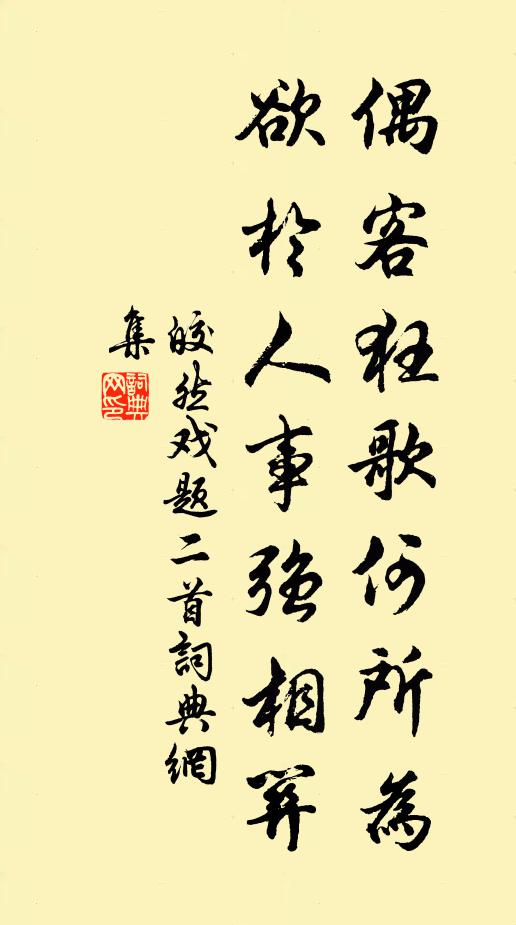 偶客狂歌何所為
欲於人事強相關
皎然戏题二首詞典網
集
詞典
网印